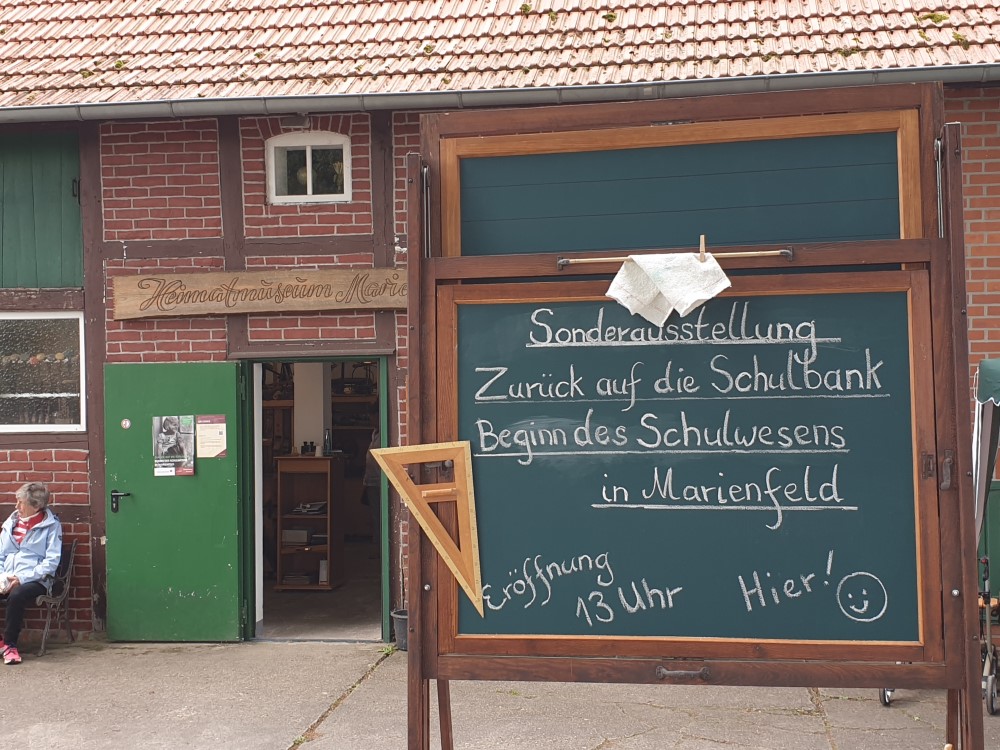 Heimatmuseum Marie
Sonderausstellung
Zurück auf die Schulbank
Beginn des Schulwesens
in Marienfeld
Eröffnung
13 Uhr
Hier!